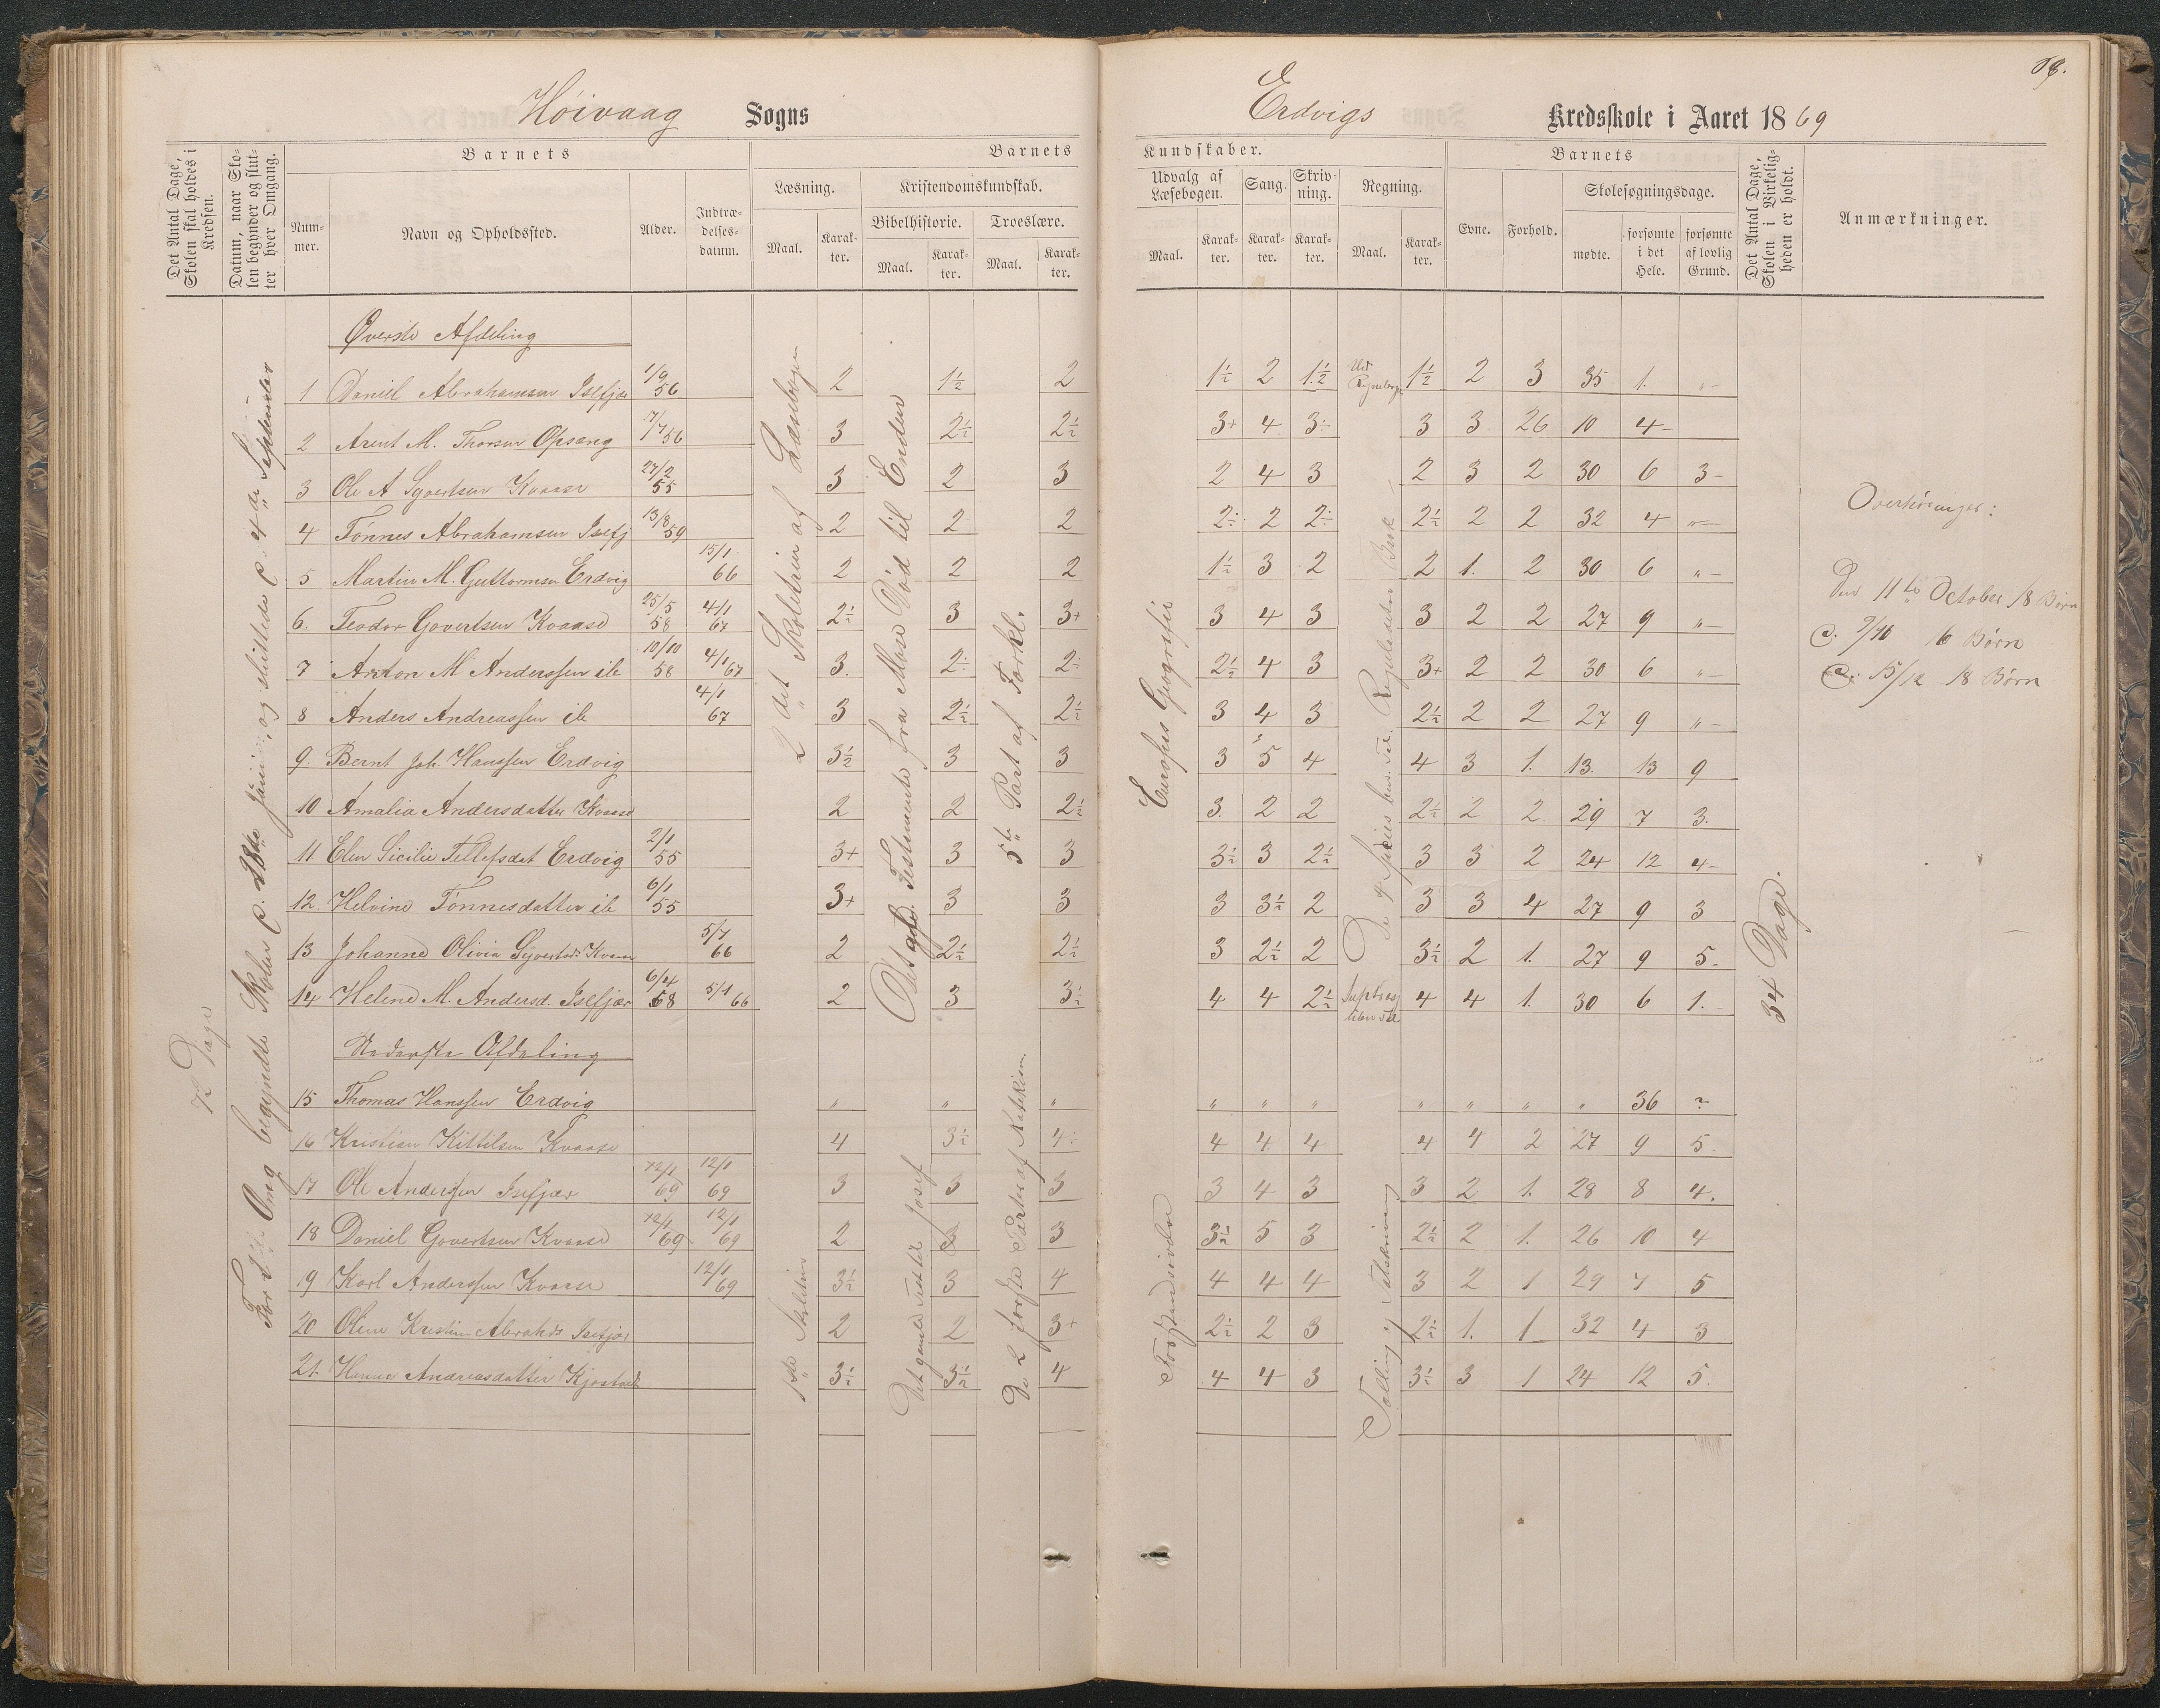 Høivaag Sogns
Erdvigs Kredsskole i Aaret 1869
Det Antal Dage, Skolen skal holdes i Kredsen.
Datum, naar Skolen begynder og slutter hver Omgang.
Barnets
Nummer.
Navn og Opholdssted.
Alder.
Indtrædelsesdatum.
Barnets
Læsning.
Maal.
Karakter.
Kristendomskundskab.
Bibelhistorie.
Maal.
Karakter.
Troeslære.
Maal.
Karakter.
Kundskaber.
Udvalg af Læsebogen.
Maal.
Karakter.
Sang.
Karakter.
Skrivning.
Karakter.
Regning.
Maal.
Karakter.
Barnets
Evne.
Forhold.
Skolesøgningsdage.
mødte.
forsømte i det Hele.
forsømte af lovlig Grund.
Det Antal Dage, Skolen i Virkeligheden er holdt.
Anmærkninger.
Øverste Afdeling
1 Daniel Abrahamsen Isefjær 1/9 56 2 1½ 2 1½ 2 1½ 1½ 2 3 35 1. „
2 Arent M. Thorsen Opsang 7/7 56 3 2½ 2½ 3+ 4 3÷ 3 3 26 10 4
3 Ole A Syvertsen Kvaase 27/2 55 3 2 3 2 4 3 2 3 2 30 6 3
4 Tønnes Abrahamsen Isefj 13/8 59 2 2 2 2÷ 2 2÷ 2½ 2 2 32 4 „
5 Martin M. Guttormsen Erdvig 15/1 66 2 2 2 1½ 3 2 2 1. 2 30 6 „
6. Teodor Govertsen Kvaase 25/5 58 4/1 67 2½ 3 3+ 3 4 3 3 2 2 27 9 „
7 Anton M Anderssen ib 10/10 58 4/1 67 3. 2÷ 2÷ 2½ 4 3 3+ 2 2 30 6 „
8 Anders Andreassen ib 4/1 67 3 2½ 2½ 3 4 3 2½ 2 2 27 9 „
9. Bernt Joh. Hanssen Erdvig 3½ 3 3 3 5 4 4 3 1. 13. 13 9
10 Amalia Andersdatter Kvaase 2 2 2½ 3. 2 2 2½ 2 2. 29 7 3.
11 Elen Sicilie Tellefsdat Erdvig 2/1 55 3+ 3 3 3½ 3 2½ 3 3 2 24 12 4
12. Helvine Tønnesdatter ib 6/1 55 3+ 3 3 3 3½ 2 3 3 4 27 9 3
13 Johanne Olivia Syvertsd: Kvaase 5/1 66 2 2½ 2½ 3 2½ 2 3½ 2 1. 27 9 5.
14 Helene M. Andersd. Isefjær 6/4 58 5/1 66 2 3 3½ 4 4 2½ 4 4 1. 30 6 1.
Nederste Afdeling
15 Thomas Hanssen Erdvig „ „ „ „ „ „ „ „ „ „ 36 ?
16 Kristian Kittilsen Kvaase 4 3½ 4÷ 4 4 4 4 4 2 27 9 5
17 Ole Anderssen Isefjær 12/1 69 12/1 69 3 3 3 3 4 3 3 2 1. 28 8 4.
18 Daniel Govertsen Kvaase 12/1 69 12/1 69 2 3 3 3½ 5 3 2½ 2 1. 26 10 4
19 Karl Anderssen Kvaase 12/1 69 3½ 3 4 4 4 4 3 2 1 29 7 5
20 Oline Kristine Abrahds Isefjær 2 2 3+ 2½ 2 3 2½ 1. 1 32 4 3
21. Hanna Andreasdatter Kjøstvedt 3½ 3½ 4 4 4 3 3½ 3 1 24 12 5.
72 Dage
Omg begyndte Skolen d. 28de Juni, og sluttede d. 4de September
2det Skoletrin af Læsebogen
Det gle. Testamente fra Mose Død til Enden
5te Part af Forkl.
Europas Geografi
34 Dage.
1ste Skoletrin
Det gamle Test til Josef
De 2 første Parter af Katekism.
Tælling og Talskrivning
Overhøringer:
Den 11te October 18 Børn
d. 9/10 16 Børn
d. 15/12 18 Børn